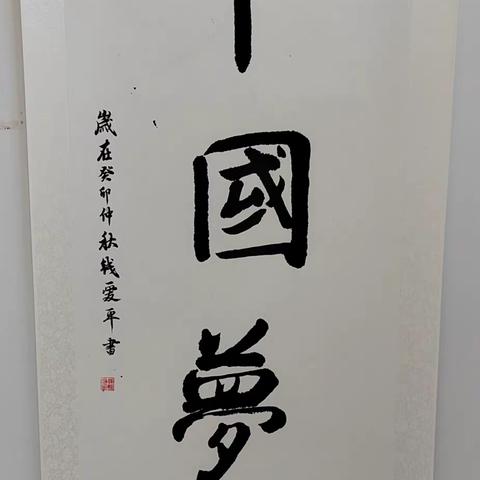 中國夢
歲在癸卯仲秋錢愛平書